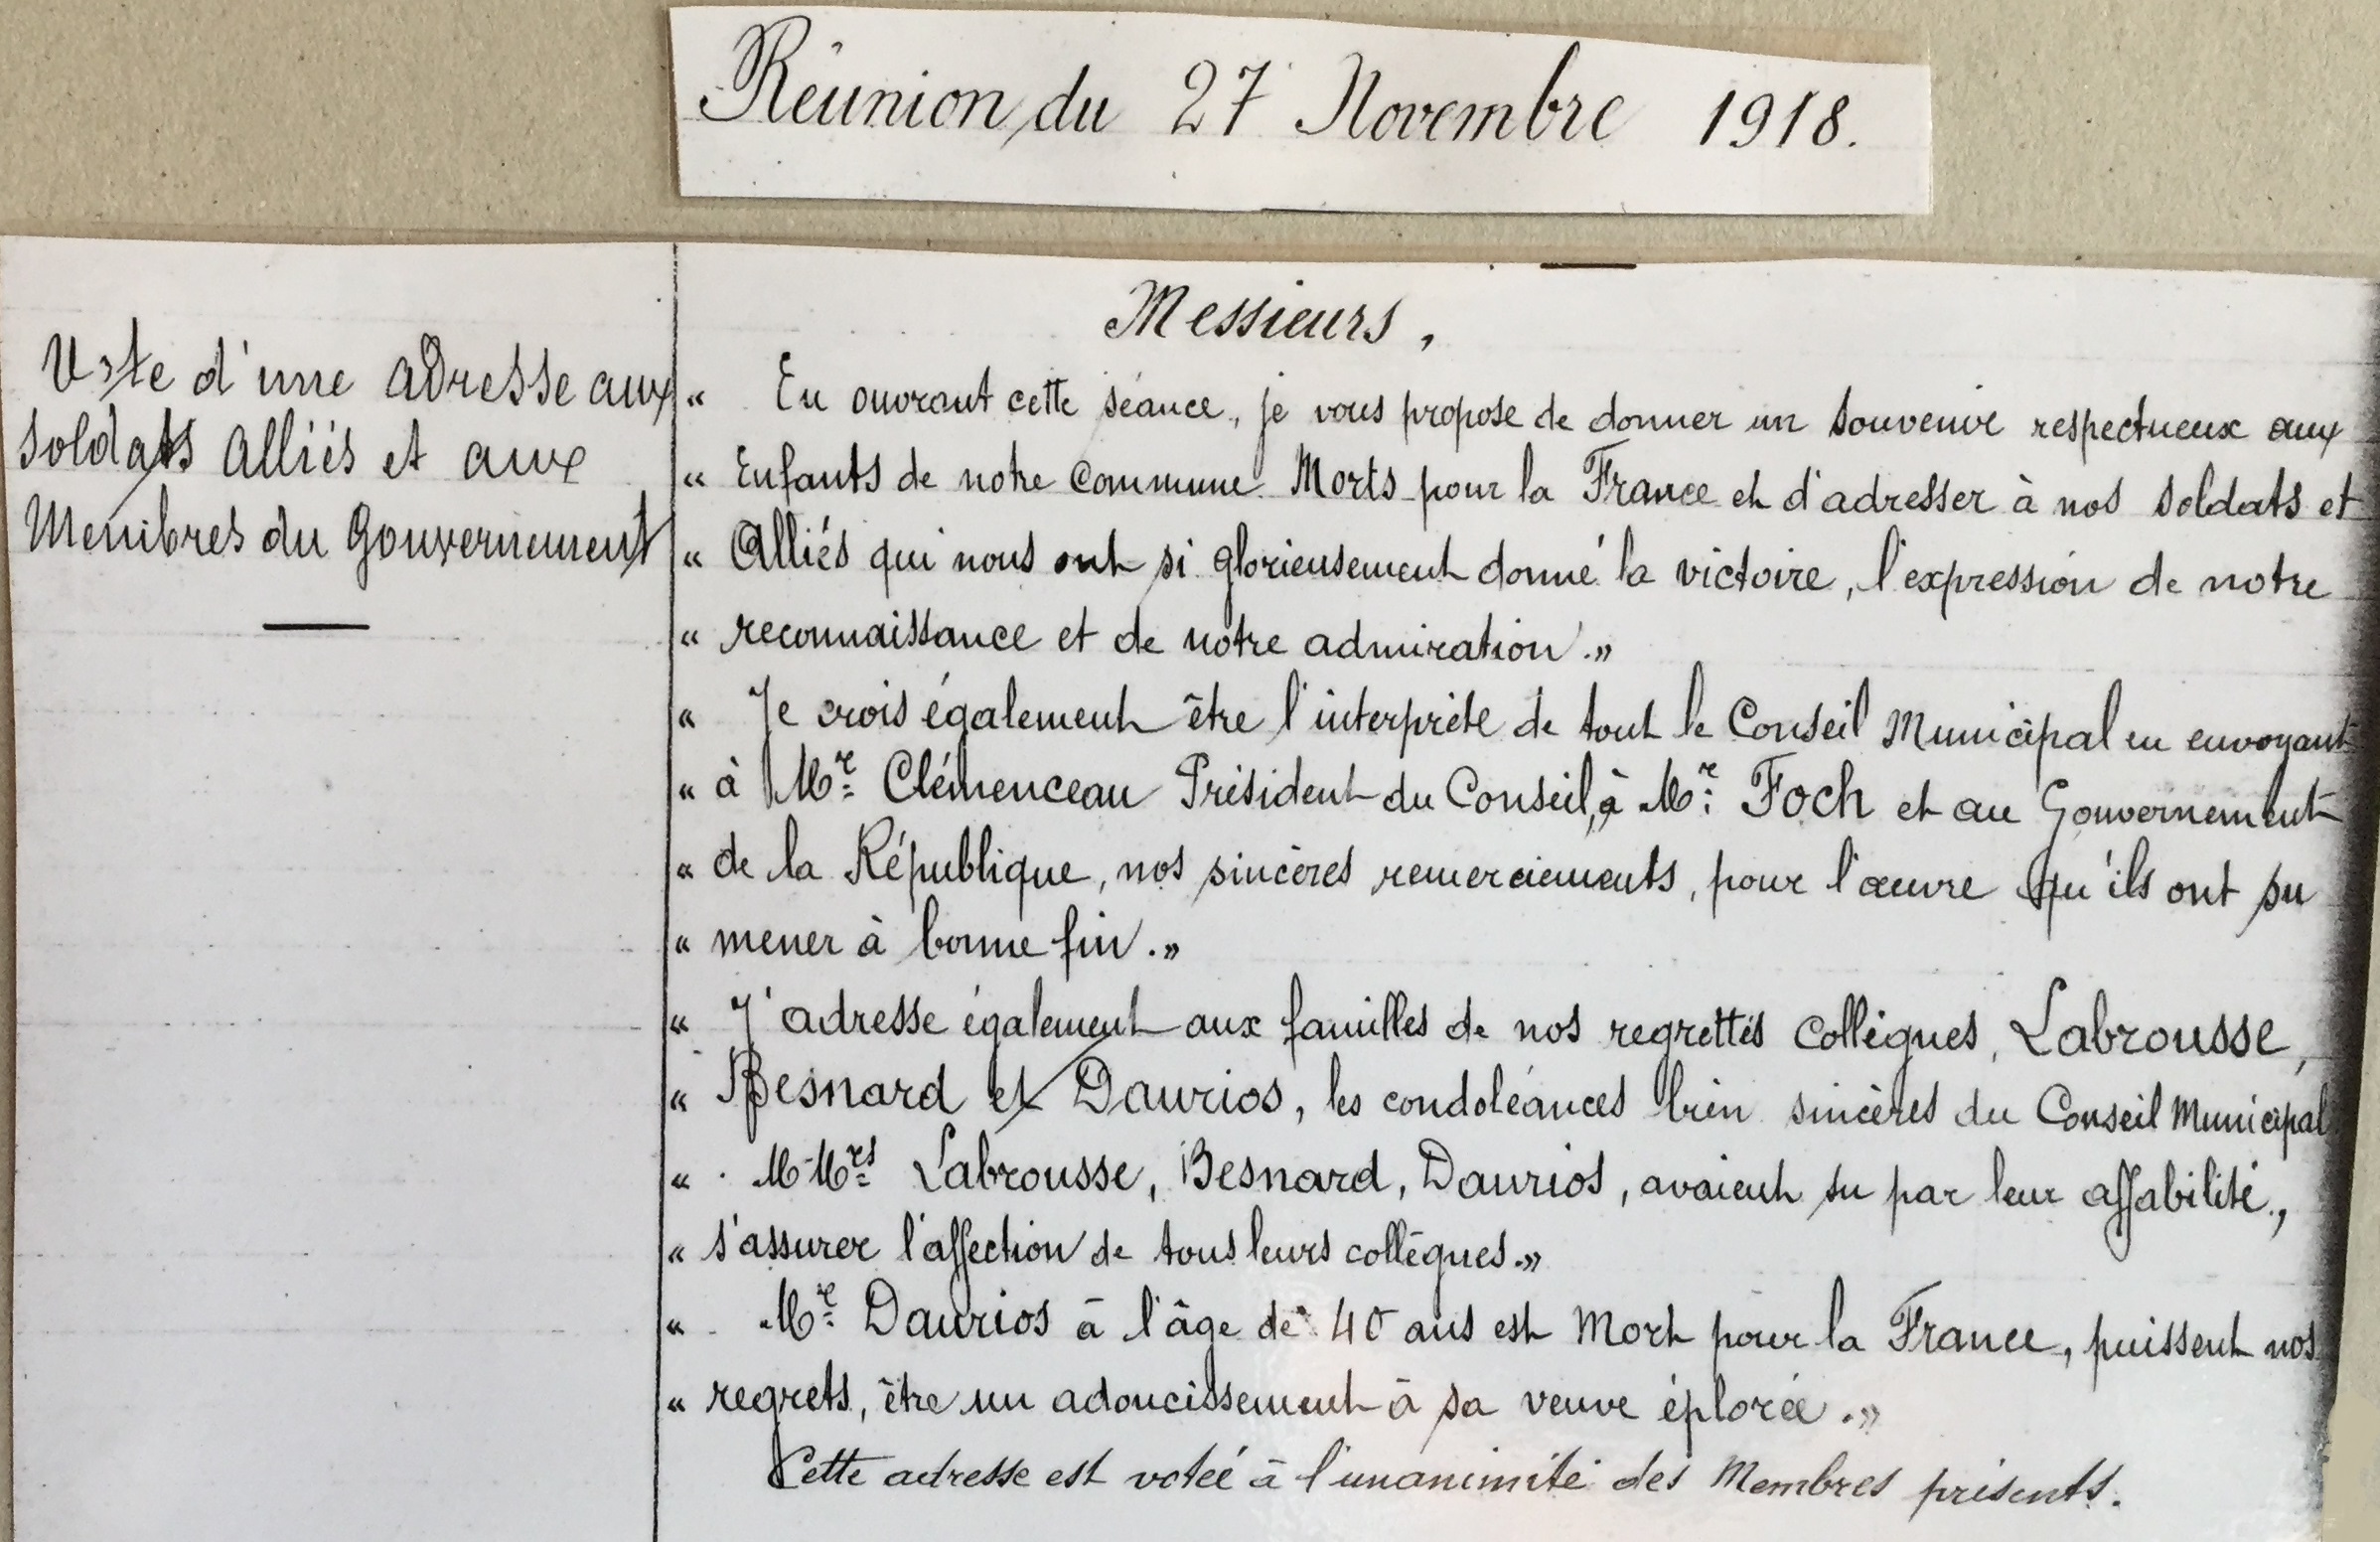 Réunion du 27 Novembre 1918.
Vote d'une adresse aux
soldats Alliés et aux
Membres du Gouvernement
Messieurs,
« En ouvrant cette séance, je vous propose de donner un souvenir respectueux aux
« Enfants de notre Commune Morts pour la France et d'adresser à nos soldats et
« Alliés qui nous ont si glorieusement donné la victoire, l'expression de notre
« reconnaissance et de notre admiration.»
« Je crois également être l'interprète de tout le Conseil Municipal en envoyant
« à Mr. Clémenceau Président du Conseil, à Mr. Foch et au Gouvernement
« de la République, nos sincères remerciements, pour l'œuvre qu'ils ont su
« mener à bonne fin.»
« J'adresse également aux familles de nos regrettés collègues, Labrousse,
« Besnard et Daurios, les condoléances bien sincères du Conseil Municipal.
« M Mrs Labrousse, Besnard, Daurios, avaient su par leur affabilité,
« s'assurer l'affection de tous leurs collègues.»
« Mr. Daurios à l'âge de 40 ans est Mort pour la France, puissent nos
« regrets, être un adoucissement à sa veuve éplorée.»
Cette adresse est votée à l'unanimité des Membres présents.